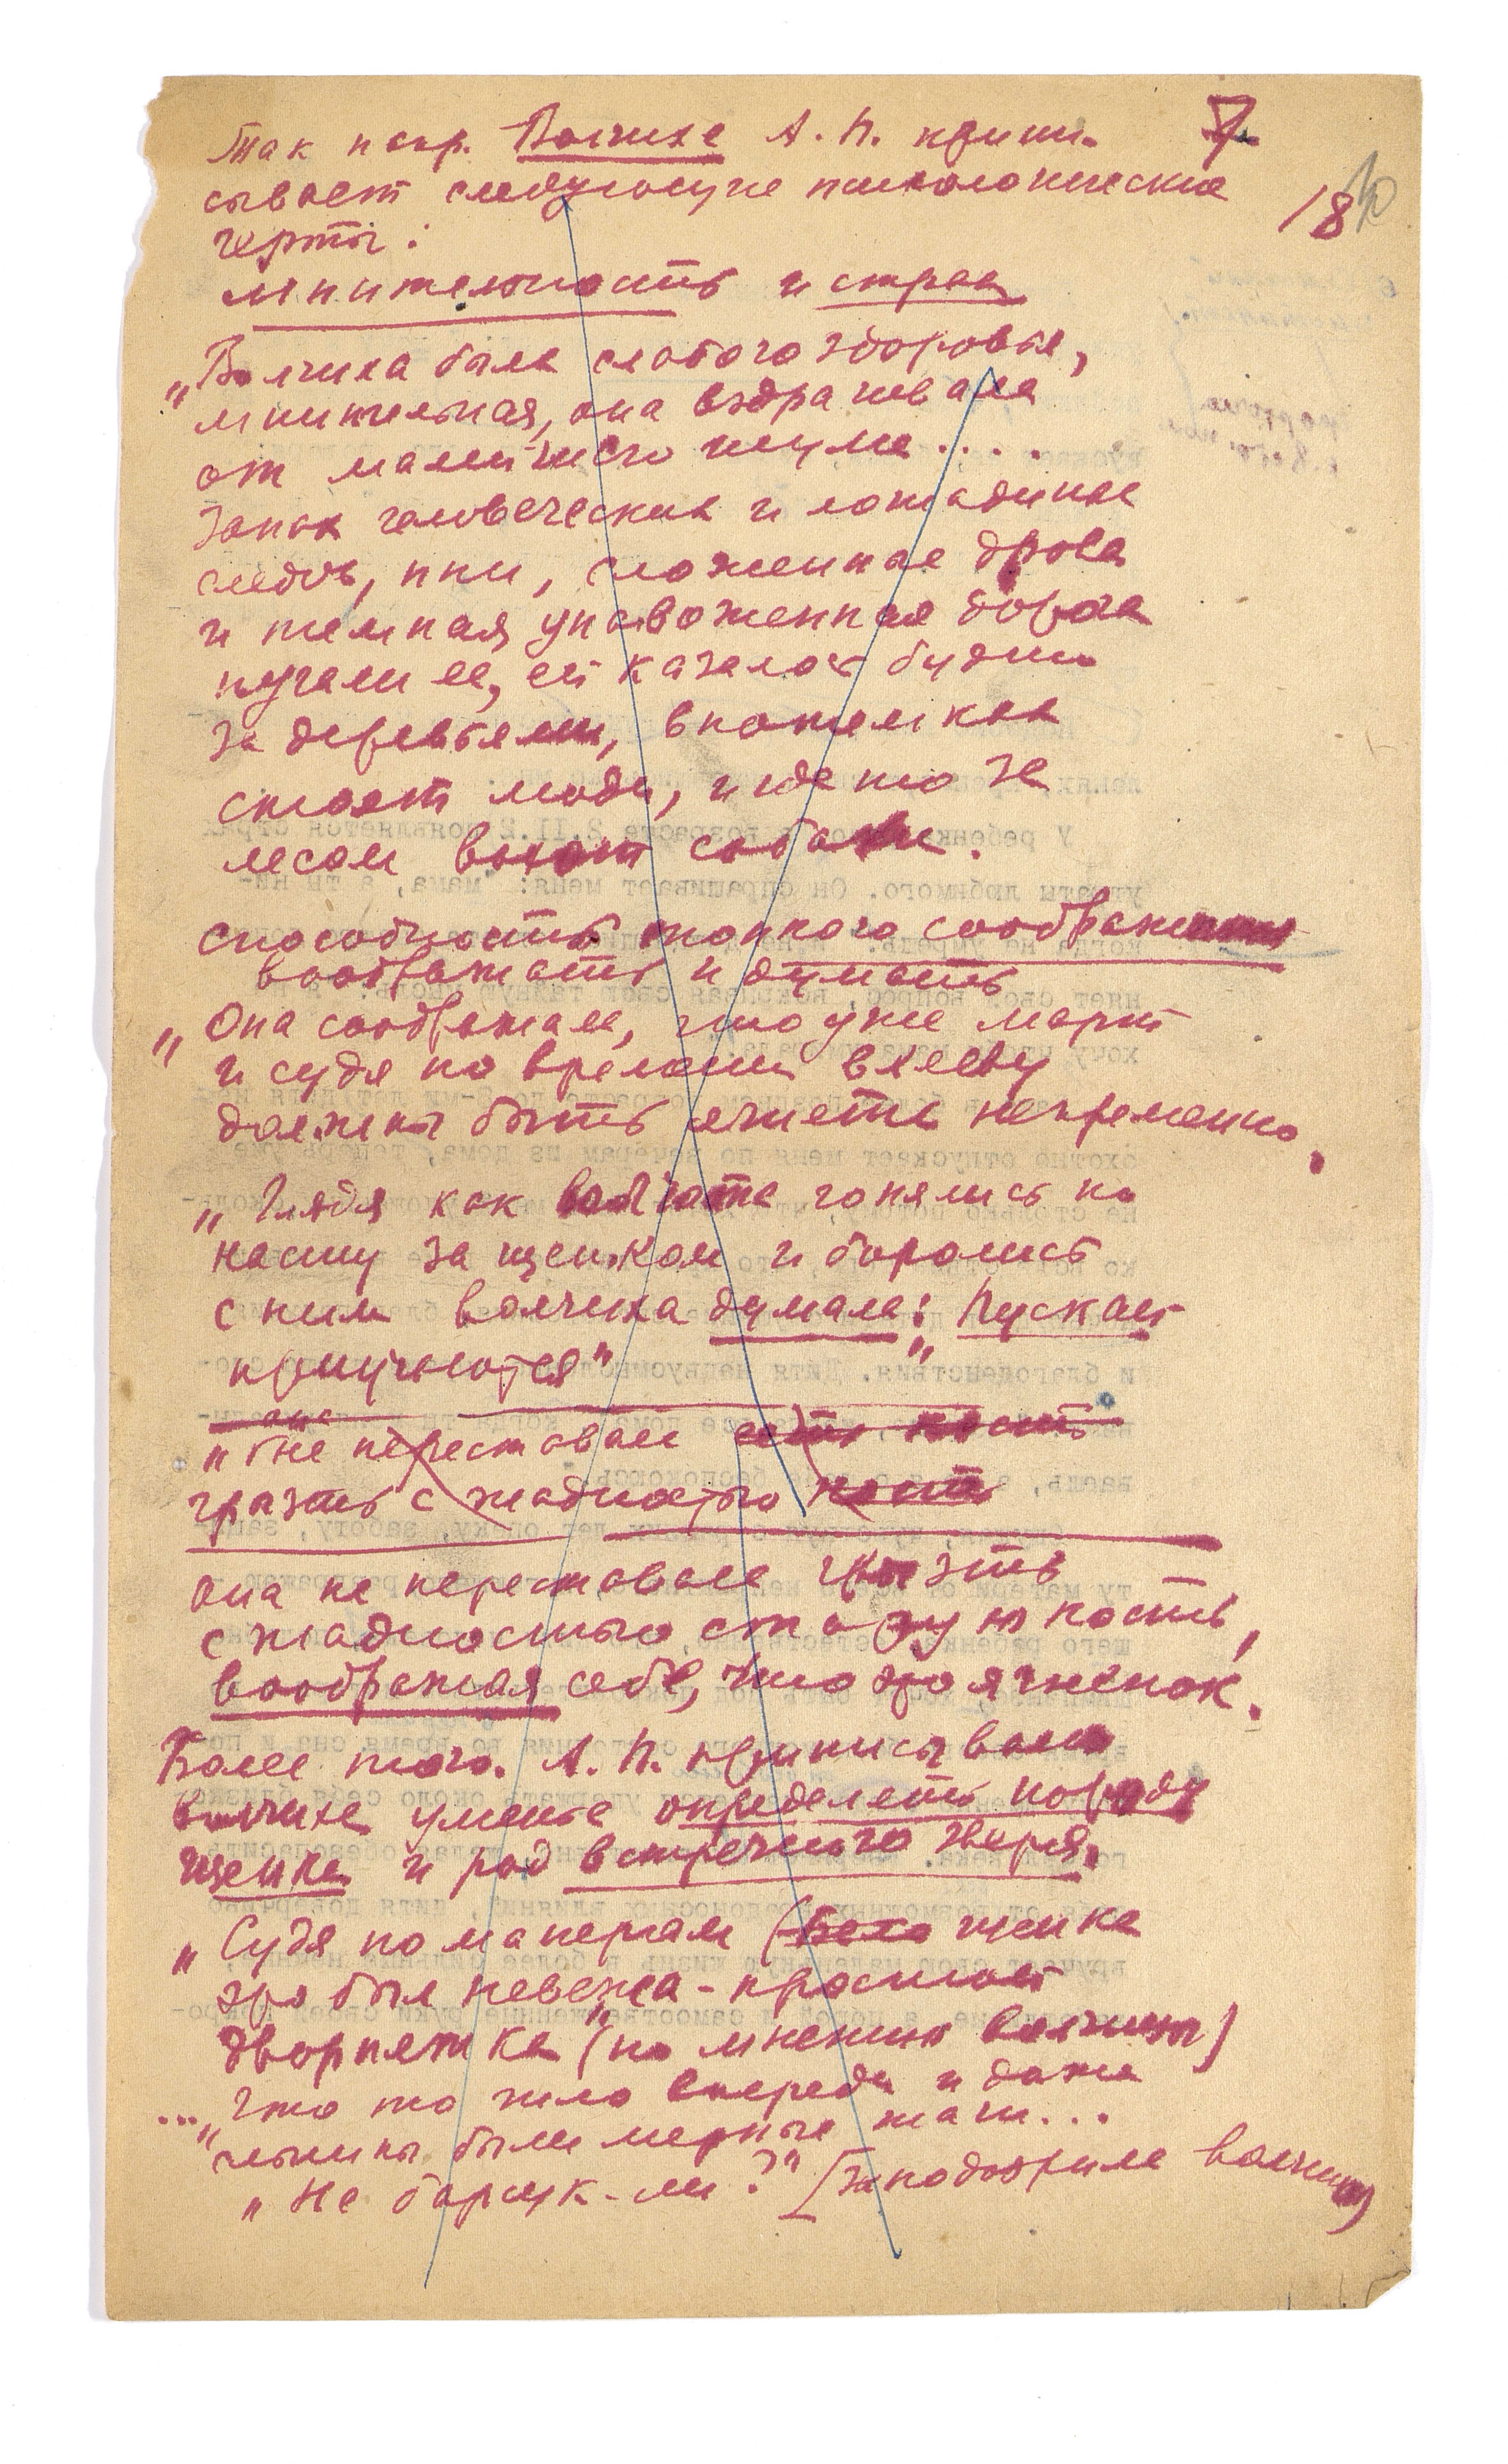 Так напр. Волчихе А. П. припи-
7
сывает следующие психологические
18
черты:
мнительность и страх
„Волчиха была слабого здоровья,
мнительная, она вздрагивала
от малейшего шума....
Запах человеческих и лошадиных
следов, пни, сложенные дрова
и темная унавоженная дорога
пугали ее, ей казалось будто
за деревьями, в потемках
стоят люди, и где то за
лесом воют собаки.
способность тонкого соображения
воображать и думать
„Она соображала, что уже март
и судя по времени в хлеву
должны быть ягнята непременно,
„Глядя как волчата гонялись по
насту за щенком и боролись
с ним волчиха думала: „Пускай
приучаются"
она
„Не переставая есть кость
грызть с жадностью кость
Она не переставала грызть
с жадностью старую кость,
воображая себе, что это ягненок.
Более того. А. П. приписывает
волчихе уменье определять породу
щенка и род встречного зверя.
„Судя по манерам (бело щенка
это был невежа - простая
дворняжка" (по мнению волчихи)
... „Что то шло впереди и даже
слышны были мерные шаги...
„Не барсук-ли?" [заподозрила волчиха)